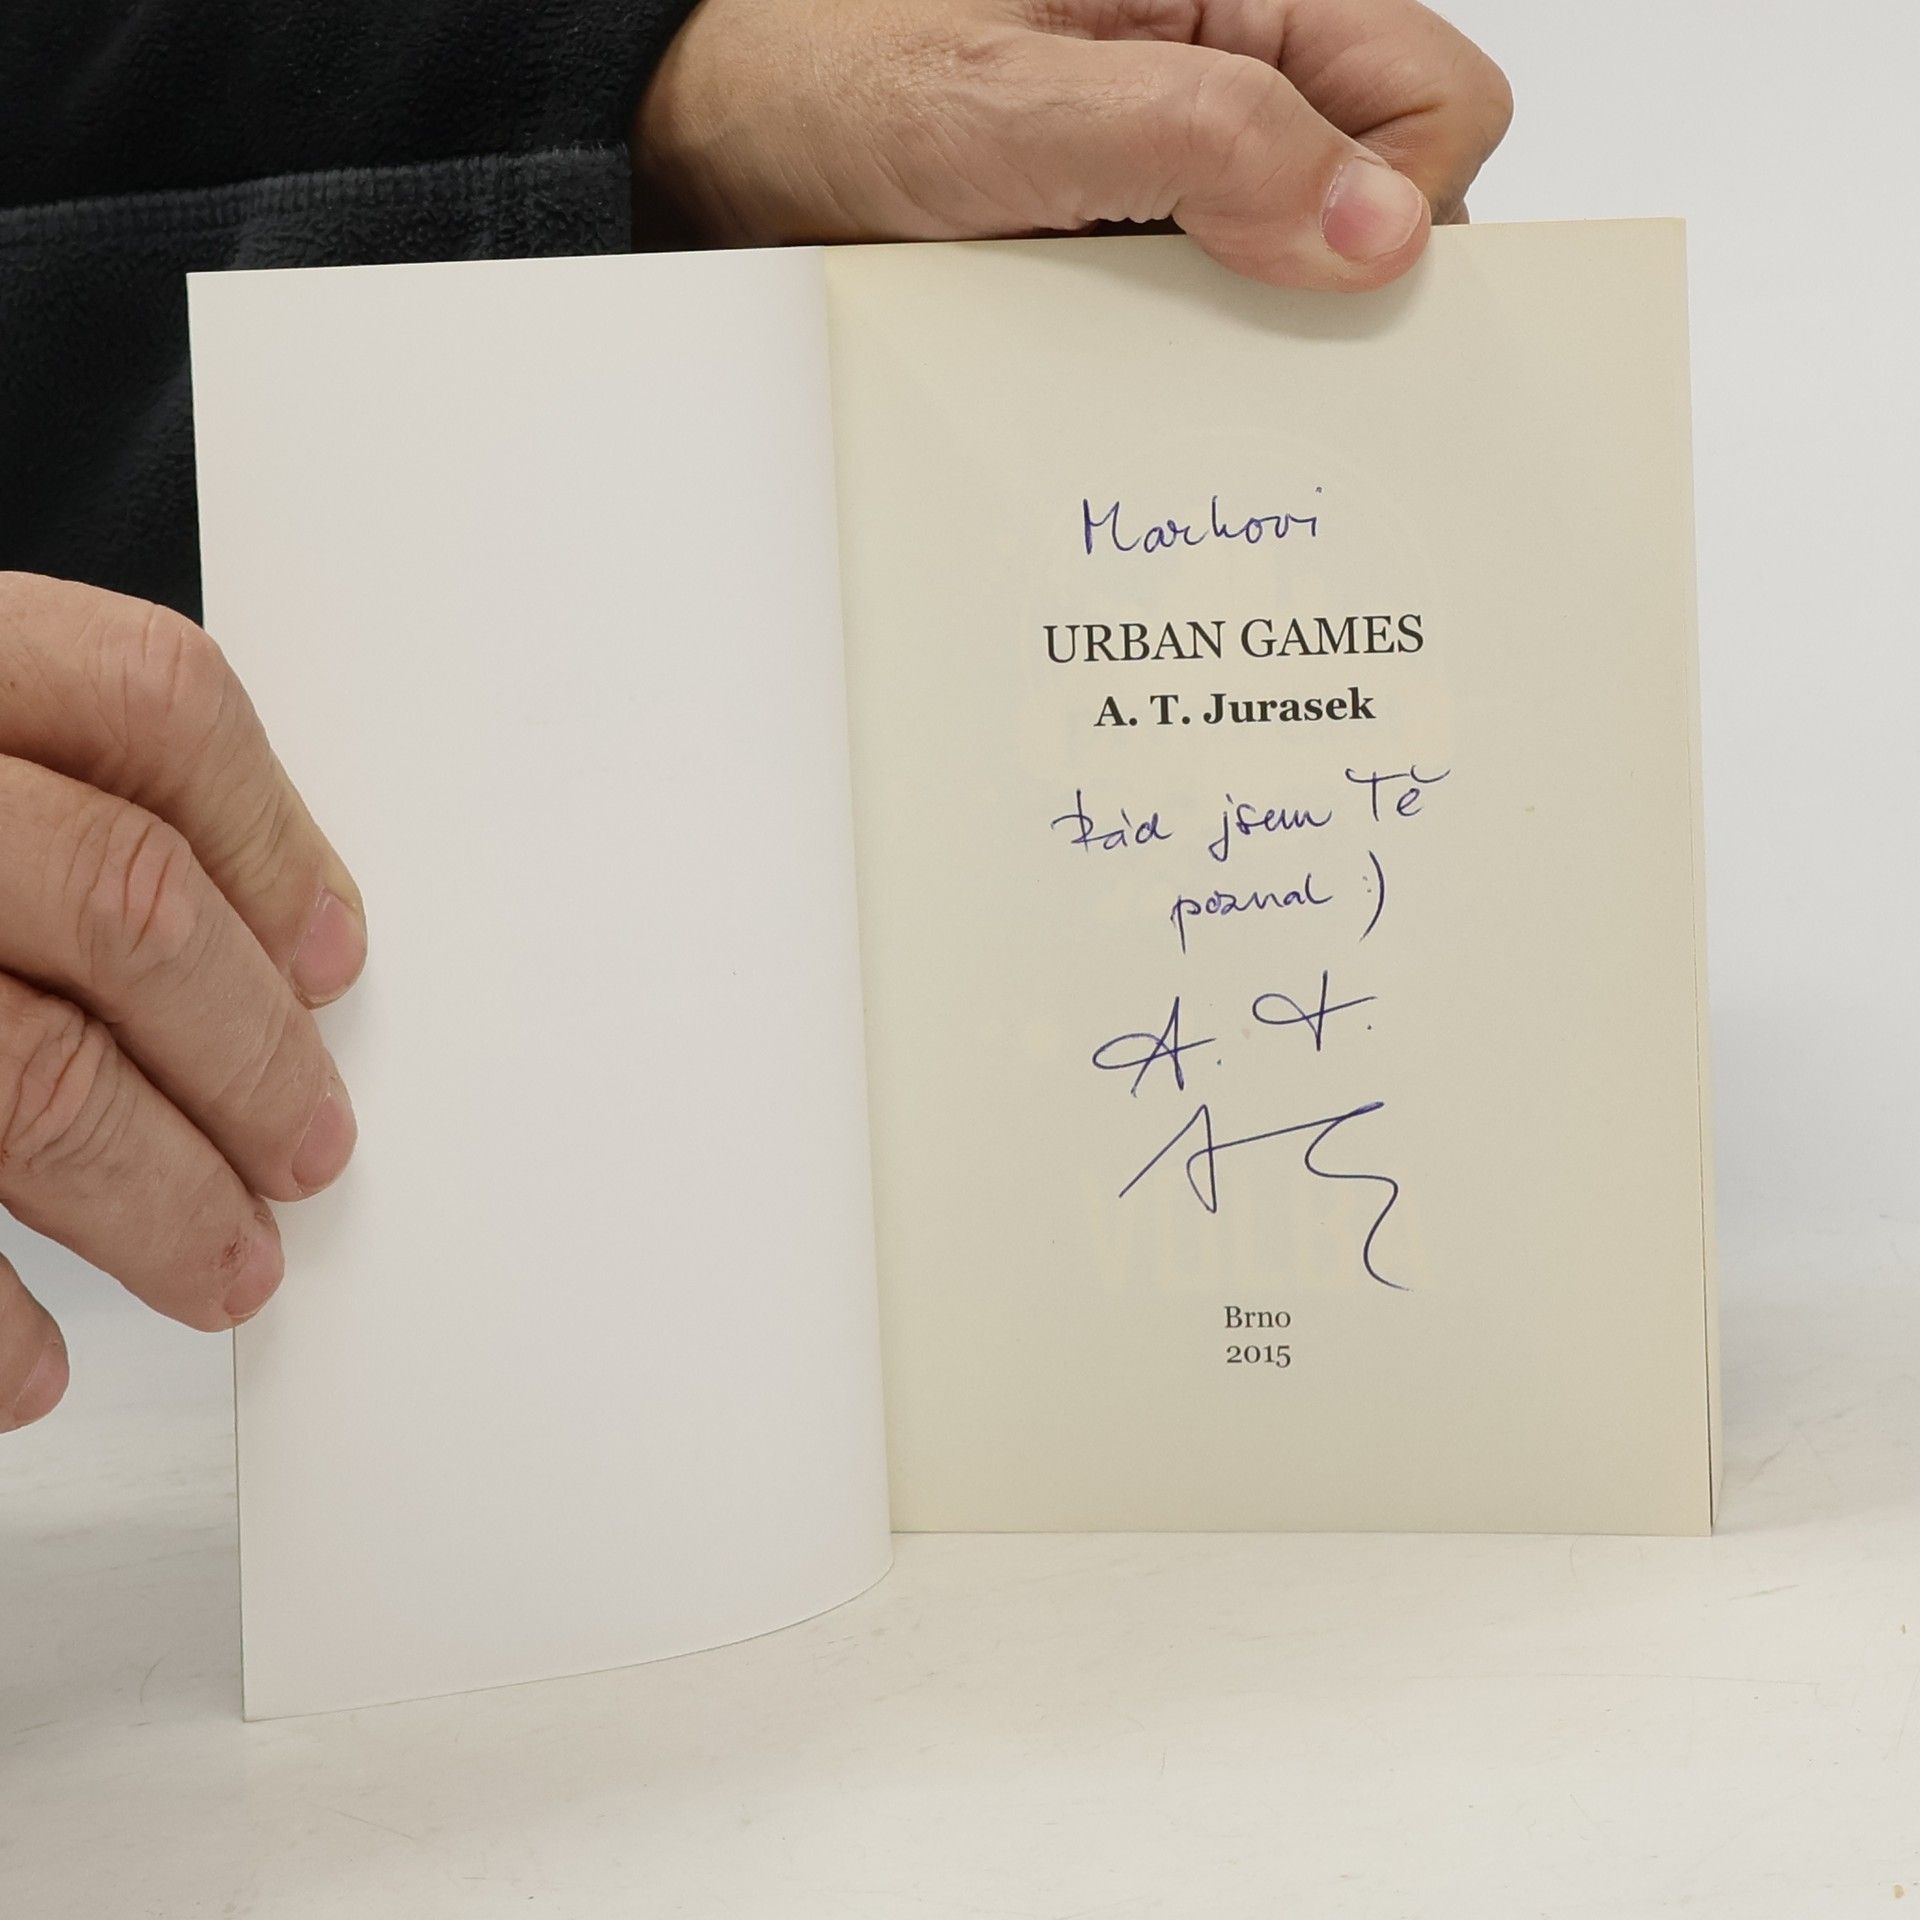 Markovi
URBAN GAMES
A. T. Jurasek
Rád jsem Tě
poznal :)
A. T.
Brno
2015